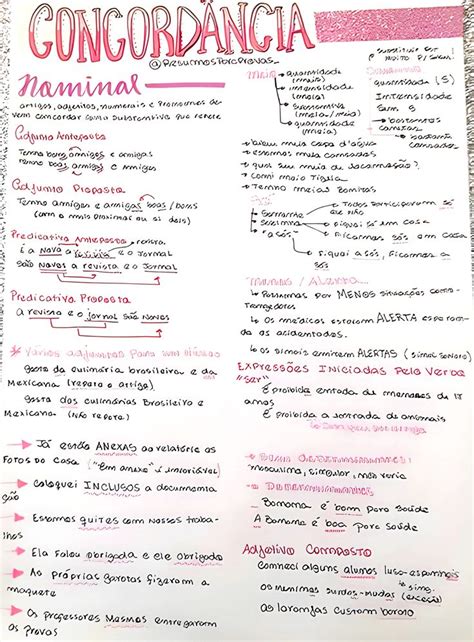 CONCORDÂNCIA
@ResumosParaProvas_
Nominal
artigos, adjetivos, numerais e Pronomes de-
vem concordar com o substantivo que refere
Adjunto Anteposto
Tenho bons amigos e amigas
Tenho boas amigas e amigos
Adjunto Proposto
Tenho amigos e amigas boas / bons
(com o mais próximo ou os dois)
Predicativo Anteposto
é a Nova a revista e o Jornal
são Novos a revista e o Jornal
Predicativo Proposto
A revista e o jornal são Novos
* Vários adjuntos para um
Gosto da culinária brasileira e da
Mexicana (repete o artigo)
Gosto das culinárias Brasileira e
Mexicana (Não repete)
Já estão ANEXAS ao relatório as
Fotos do Casa ("Em anexo" é invariável)
Coloquei INCLUSOS a documenta
ção
Estamos quites com Nossos traba-
lhos
Ela falou obrigada e ele Obrigado
As próprias garotas fizeram a
maquete
Os professores Mesmos entregaram
as Provas
Meio
quantidade
(meia)
intensidade
(meio)
substantivo
(meio/meia)
quantidade
(meia)
substituir por
muito
Bastante
quantidade (S)
Intensidade
Sem S
bastantes
canetas
bastante
cansadas
Bebem meia caixa d'água
estamos mais cansada
qual seu meio de locomoção?
comi meia tigela
Tenho meias Bonitas
Só
Somente
Sozinho
"a sós"
Todos participaram só
ele não
Fiquei só em casa
Ficamos sós em casa
Fiquei a sós, Ficamos a
sós
Menos / Alerta
Passamos por MENOS situações cons-
trangedoras
Os médicos estavam ALERTA esperan-
do os acidentados.
os sinais emitem ALERTAS (sinal sonoro)
EXPRESSÕES INICIADAS Pelo Verbo
"ser"
É proibido entrada de menores de 17
anos
É Proibida a entrada de animais
masculino, singular, não varia
Determinantes
Banana é bom para saúde
A Banana é boa para saúde
Adjetivo Composto
Conheci alguns alunos luso-espanhóis
sing.
os meninos surdos-mudos (exceção)
as laranjas custam barato